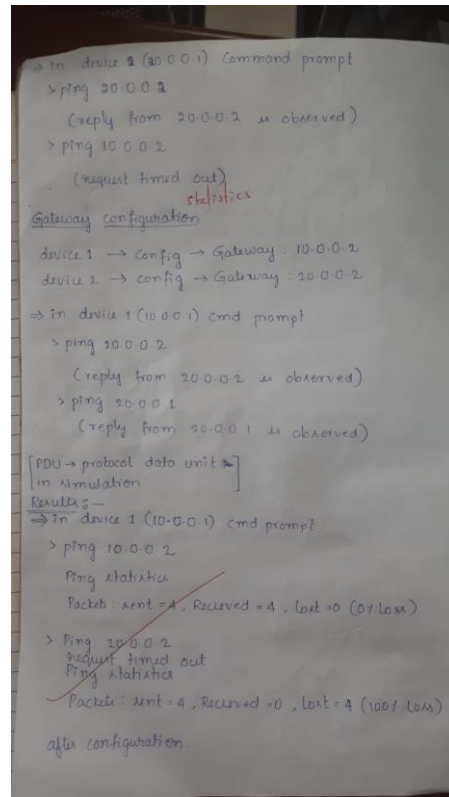 ⇒ in device 2 (20.0.0.1) Command prompt
> ping 20.0.0.2
(reply from 20.0.0.2 is observed)
> ping 10.0.0.2
(request timed out)
statistics
Gateway configuration
device 1 → config → Gateway : 10.0.0.2
device 2 → config → Gateway : 20.0.0.2
⇒ in device 1 (10.0.0.1) cmd prompt
> ping 20.0.0.2
(reply from 20.0.0.2 is observed)
> ping 20.0.0.1
(reply from 20.0.0.1 is observed)
[PDU → protocol data unit
in simulation]
Results :-
⇒ in device 1 (10.0.0.1) cmd prompt
> ping 10.0.0.2
Ping statistics
Packets : sent = 4, Recieved = 4, Lost = 0 (0% Loss)
> Ping 20.0.0.2
request timed out
Ping statistics
Packets : sent = 4, Recieved = 0, Lost = 4 (100% Loss)
after configuration.